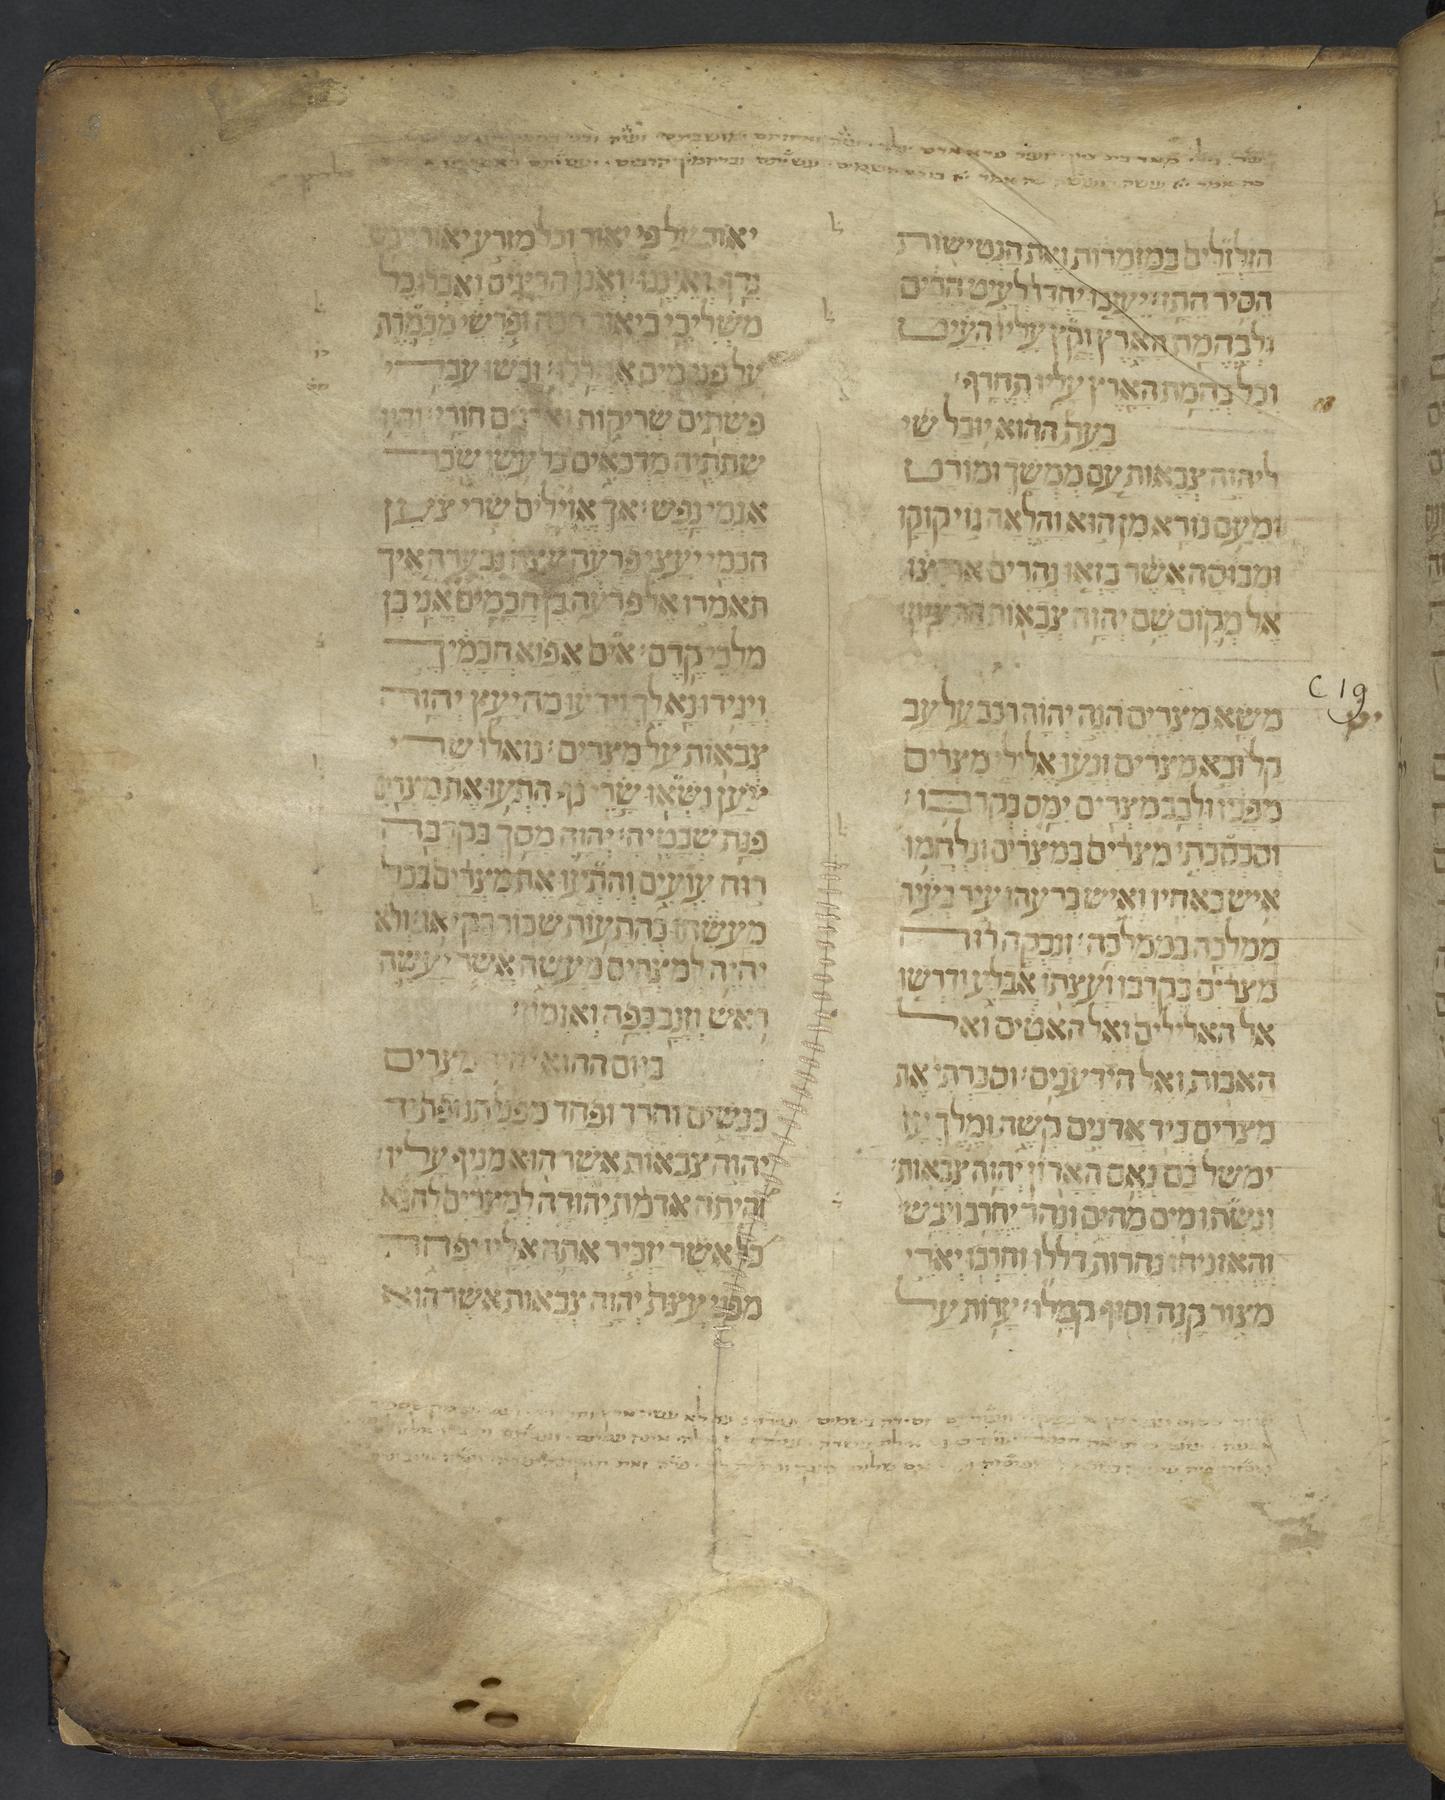 הזלזלים במזמרות ואת הנטישות
הסיר התז יעזבו יחדו לעיט הרים
ולבהמת הארץ וקץ עליו העיט
וכל בהמת הארץ עליו תחרף
בעת ההוא יובל שי
ליהוה צבאות עם ממשך ומורט
ומעם נורא מן הוא והלאה גוי קוקו
ומבוסה אשר בזאו נהרים ארצו
אל מקום שם יהוה צבאות הר ציון
C 19
יט
משא מצרים הנה יהוה רכב על עב
קל ובא מצרים ונעו אלילי מצרים
מפניו ולבב מצרים ימס בקרבו
וסכסכתי מצרים במצרים ונלחמו
איש באחיו ואיש ברעהו עיר בעיר
ממלכה בממלכה ונבקה רוח
מצרים בקרבו ועצתו אבלע ודרשו
אל האלילים ואל האטים ואל
האבות ואל הידענים וסכרתי את
מצרים ביד אדנים קשה ומלך עז
ימשל בם נאם האדון יהוה צבאות
ונשתו מים מהים ונהר יחרב ויבש
והאזניחו נהרות דללו וחרבו יארי
מצור קנה וסוף קמלו ערות על
יאור על פי יאור וכל מזרע יאור ייבש
נדף ואיננו ואנו הדיגים ואבלו כל
משליכי ביאור חכה ופרשי מכמרת
על פני מים אמללו ובשו עבדי
פשתים שריקות וארגים חורי והיו
שתתיה מדכאים כל עשי שכר
אגמי נפש אך אוילים שרי צען
חכמי יעצי פרעה עצה נבערה איך
תאמרו אל פרעה בן חכמים אני בן
מלכי קדם אים אפוא חכמיך
ויגידו נא לך וידעו מה יעץ יהוה
צבאות על מצרים נואלו שרי
צען נשאו שרי נף התעו את מצרים
פנת שבטיה יהוה מסך בקרבה
רוח עועים והתעו את מצרים בכל
מעשהו כהתעות שכור בקיאו ולא
יהיה למצרים מעשה אשר יעשה
ראש וזנב כפה ואגמון
ביום ההוא יהיה מצרים
כנשים וחרד ופחד מפני תנופת יד
יהוה צבאות אשר הוא מניף עליו
והיתה אדמת יהודה למצרים לחגא
כל אשר יזכיר אתה אליו יפחד
מפני עצת יהוה צבאות אשר הוא